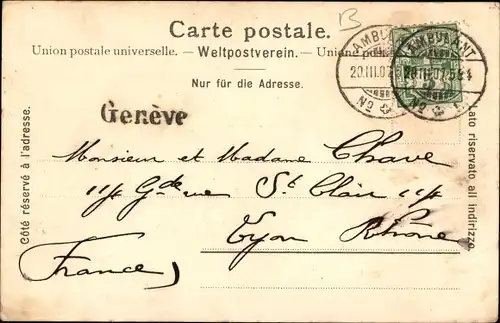 Carte postale.
B
Union postale universelle. – Weltpostverein. – Unione
Nur für die Adresse.
AMBULANT
20.III.07
No
AMBULANT
20.III.07
No
Côté réservé à l'adresse.
Genève
Monsieur et Madame Chave
Gde rue St Clair
Lyon Rhône
France)
riservato all indirizzo.